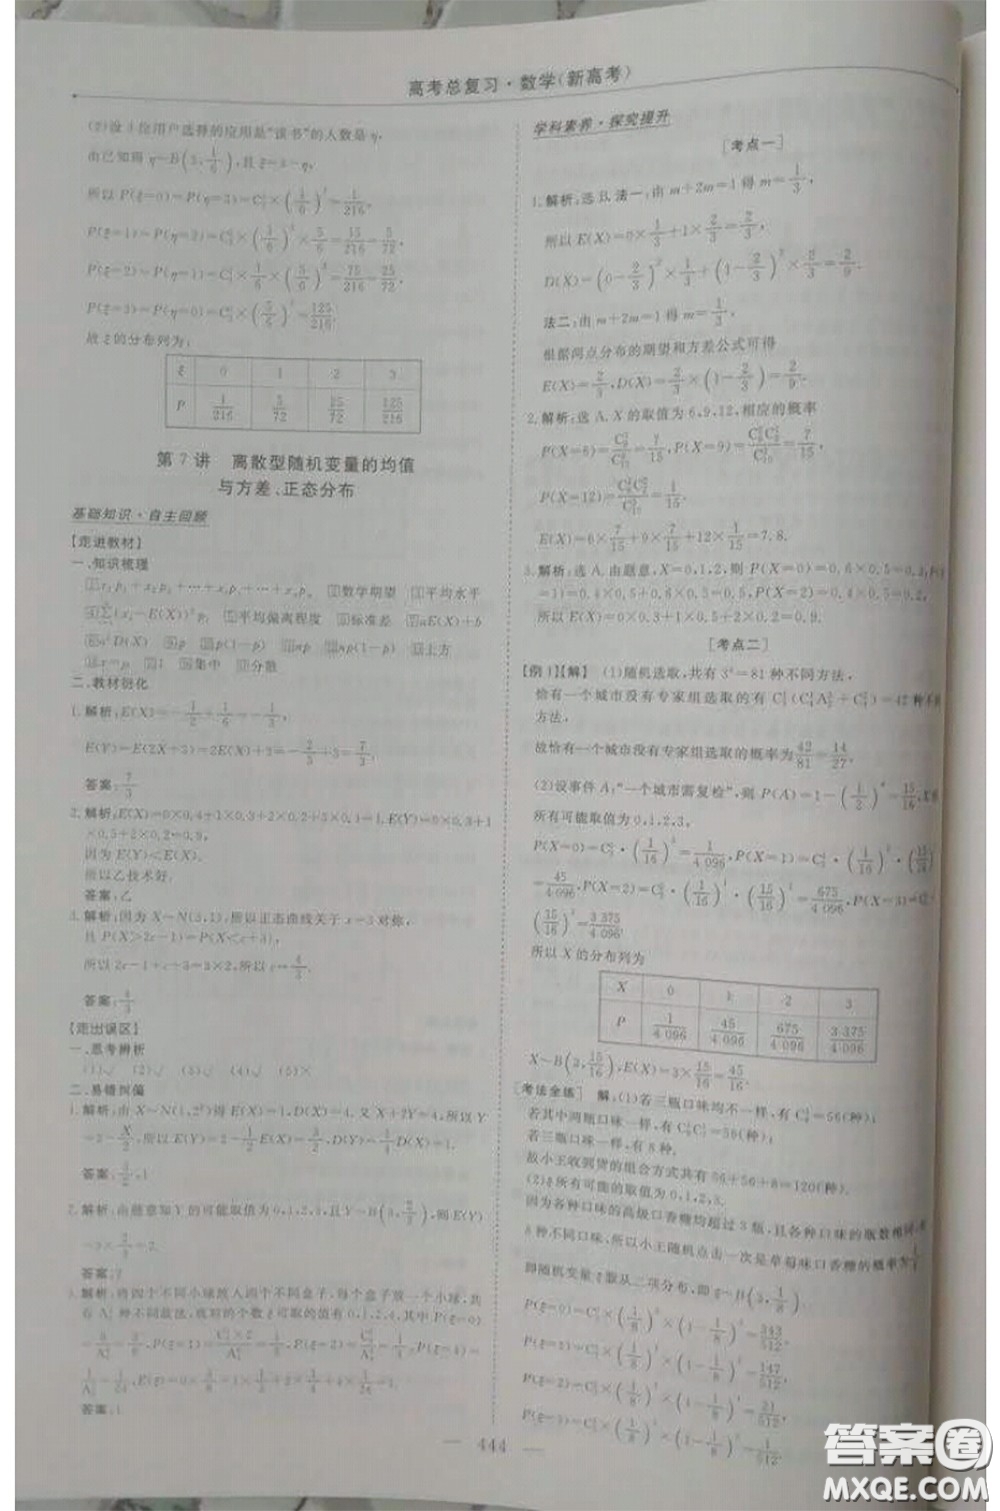 高考总复习·数学(新高考)
(2)设3位用户选择的应用是“读书”的人数是η,
由已知得 η~B(3,1/6),且ξ=3-η,
所以 P(ξ=0)=P(η=3)=C₃³×(1/6)³=1/216,
P(ξ=1)=P(η=2)=C₃²×(1/6)²×5/6=15/216=5/72,
P(ξ=2)=P(η=1)=C₃¹×1/6×(5/6)²=75/216=25/72,
P(ξ=3)=P(η=0)=C₃⁰×(5/6)³=125/216.
故ξ的分布列为:
ξ 0 1 2 3
P 1/216 5/72 25/72 125/216
第7讲 离散型随机变量的均值
与方差、正态分布
基础知识·自主回顾
[走进教材]
一、知识梳理
1 x₁p₁+x₂p₂+…+xᵢpᵢ+…+xₙpₙ 2数学期望 3平均水平
(xᵢ-E(X))²pᵢ 5平均偏离程度 6标准差 aE(X)+b
a²D(X) p p(1-p) np np(1-p) 上方
x=μ 1 集中 分散
二、教材衍化
1.解析:E(X)=-1/2+1/6=-1/3,
E(Y)=E(2X+3)=2E(X)+3=-2/3+3=7/3.
答案:7/3
2.解析:E(X)=0×0.4+1×0.3+2×0.2+3×0.1=1.E(Y)=0×0.3+1
×0.5+2×0.2=0.9,
因为 E(Y)<E(X).
所以乙技术好.
答案:乙
3.解析:因为 X~N(3,1),所以正态曲线关于 x=3 对称,
且 P(X>2c-1)=P(X<c+3),
所以 2c-1+c+3=3×2,所以 c=4/3.
答案:4/3
[走出误区]
一、思考辨析
(1)√ (2)√ (3)√ (4)√ (5)×
二、易错纠偏
1.解析:由 X~N(1,2²)得 E(X)=1,D(X)=4.又 X+2Y=4,所以Y
=2-X/2,所以 E(Y)=2-1/2E(X)=3/2,D(Y)=1/4D(X)=1.
答案:3/2,1
2.解析:由题意知Y的可能取值为0,1,2,3,且Y~B(3,2/3),则E(Y)
=3×2/3=2.
答案:2
3.解析:将四个不同小球放入四个不同盒子,每个盒子放一个小球,共
有 A₄⁴ 种不同放法,放对的个数ξ可取的值有0,1,2,4,其中 P(ξ=0)
=9/A₄⁴=3/8,P(ξ=1)=C₄¹×2/A₄⁴=1/3,P(ξ=2)=C₄²/A₄⁴=1/4,P(ξ=4)=
1/A₄⁴=1/24,E(ξ)=0×3/8+1×1/3+2×1/4+4×1/24=1.
答案:1
学科素养·探究提升
[考点一]
1.解析:选B.法一:由 m+2m=1得 m=1/3,
所以 E(X)=0×1/3+1×2/3=2/3,
D(X)=(0-2/3)²×1/3+(1-2/3)²×2/3=2/9.
法二:由 m+2m=1得 m=1/3.
根据两点分布的期望和方差公式可得
E(X)=2/3,D(X)=2/3×(1-2/3)=2/9.
2.解析:选A.X的取值为6,9,12,相应的概率
P(X=6)=C₈³/C₁₀³=7/15,P(X=9)=C₈²C₂¹/C₁₀³=7/15,
P(X=12)=C₈¹C₂²/C₁₀³=1/15.
E(X)=6×7/15+9×7/15+12×1/15=7.8.
3.解析:选A.由题意,X=0,1,2,则 P(X=0)=0.6×0.5=0.3,P(X
=1)=0.4×0.5+0.6×0.5=0.5,P(X=2)=0.4×0.5=0.2,
所以 E(X)=0×0.3+1×0.5+2×0.2=0.9.
[考点二]
[例1][解] (1)随机选取,共有 3⁴=81 种不同方法,
恰有一个城市没有专家组选取的有 C₃¹(C₄¹A₂²+C₄²)=42 种不同
方法,
故恰有一个城市没有专家组选取的概率为42/81=14/27.
(2)设事件 A:“一个城市需复检”,则 P(A)=1-(1/2)⁴=15/16,X的
所有可能取值为0,1,2,3,
P(X=0)=C₃⁰·(1/16)³=1/4 096,P(X=1)=C₃¹·(1/16)²·(15/16)
=45/4 096,P(X=2)=C₃²·(1/16)¹·(15/16)²=675/4 096,P(X=3)=C₃³
·(15/16)³=3 375/4 096.
所以 X 的分布列为
X 0 1 2 3
P 1/4 096 45/4 096 675/4 096 3 375/4 096
X~B(3,15/16),E(X)=3×15/16=45/16.
[考法全练] 解:(1)若三瓶口味均不一样,有 C₈³=56(种);
若其中两瓶口味一样,有 C₈¹C₇¹=56(种);
若三瓶口味一样,有 8 种.
故小王收到货的组合方式共有 56+56+8=120(种).
(2)ξ所有可能的取值为0,1,2,3.
因为各种口味的高级口香糖均超过3瓶,且各种口味的瓶数相同,有
8种不同口味,所以小王随机点击一次是草莓味口香糖的概率为1/8,
即随机变量ξ服从二项分布,即ξ~B(3,1/8).
P(ξ=0)=C₃⁰×(1/8)⁰×(1-1/8)³=343/512,
P(ξ=1)=C₃¹×(1/8)¹×(1-1/8)²=147/512,
P(ξ=2)=C₃²×(1/8)²×(1-1/8)¹=21/512,
P(ξ=3)=C₃³×(1/8)³×(1-1/8)⁰=1/512.
— 444 —
答案圈
MXQE.COM